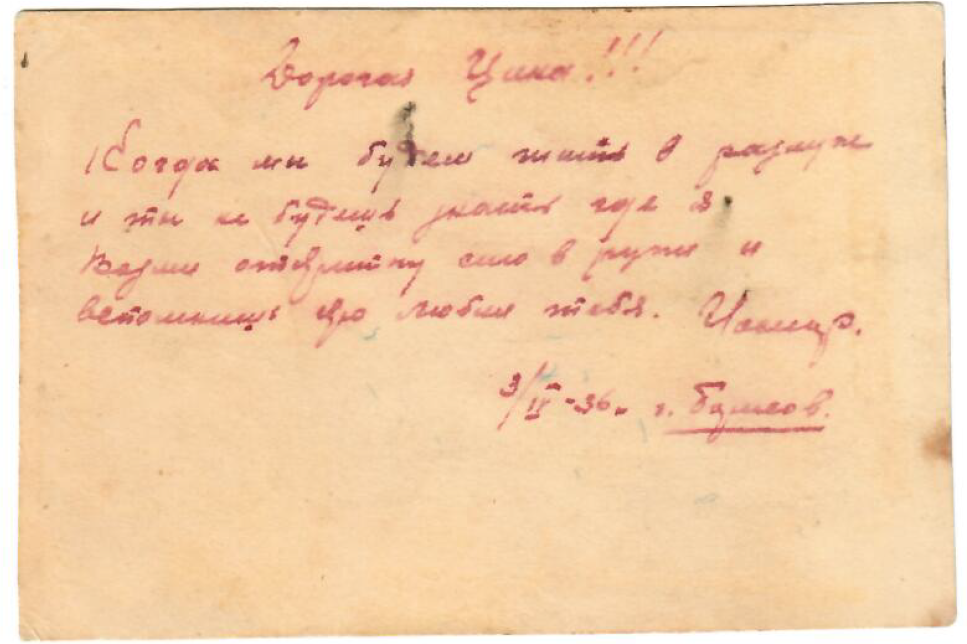 Дорогая Циля!!!
Когда мы будем жить в разлуке
и ты не будешь знать где я
Возми открытку сию в руки и
вспомнишь кто любил тебя.
3/IV-36 г.